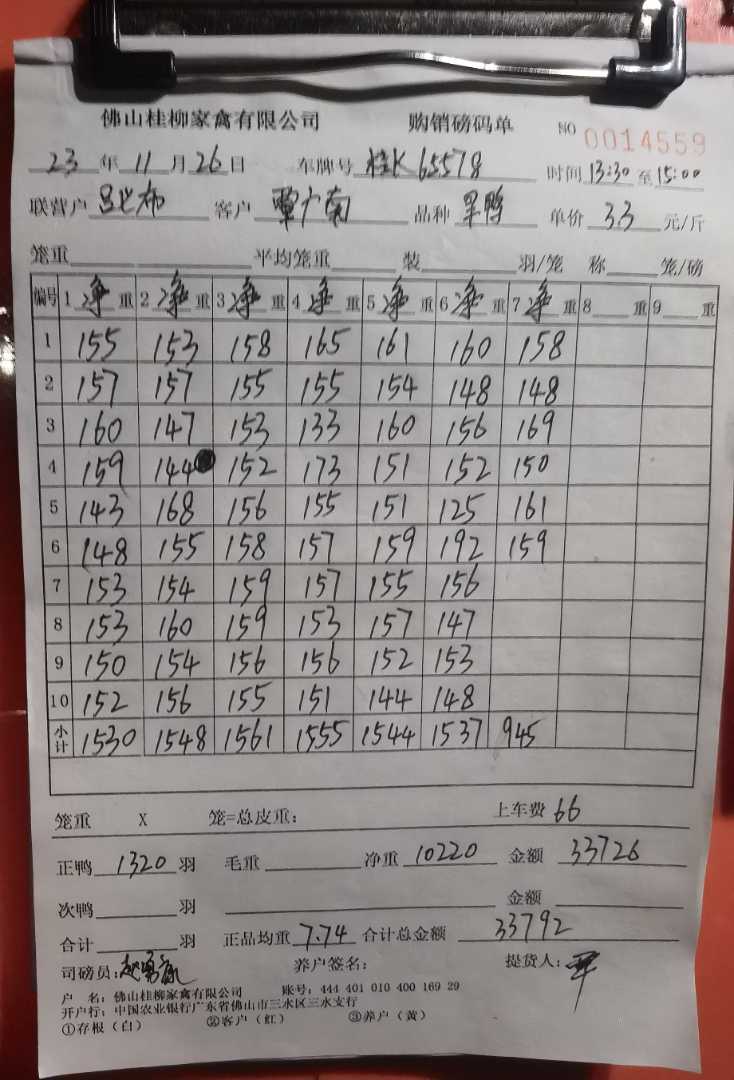 佛山桂柳家禽有限公司 购销磅码单 NO 0014559
23 年 11 月 26 日 车牌号 桂K65578 时间 13:30 至 15:00
联营户 客户 覃广南 品种 单价 3.3 元/斤
笼重 平均笼重 装 羽/笼 称 笼/磅
编号 1 净 重 2 净 重 3 净 重 4 净 重 5 净 重 6 净 重 7 净 重 8 重 9 重
1 155 153 158 165 161 160 158
2 157 157 155 155 154 148 148
3 160 147 153 133 160 156 169
4 159 144 152 173 151 152 150
5 143 168 156 155 151 125 161
6 148 155 158 157 159 192 159
7 153 154 159 157 155 156
8 153 160 159 153 157 147
9 150 154 156 156 152 153
10 152 156 155 151 144 148
小计 1530 1548 1561 1555 1544 1537 945
笼重 X 笼=总皮重: 上车费 66
正鸭 1320 羽 毛重 净重 10220 金额 33726
次鸭 羽 金额
合计 羽 正品均重 7.74 合计总金额 33792
司磅员: 养户签名: 提货人:
户 名: 佛山桂柳家禽有限公司 账号: 444 401 010 400 169 29
开户行: 中国农业银行广东省佛山市三水区三水支行
①存根(白) ②客户(红) ③养户(黄)